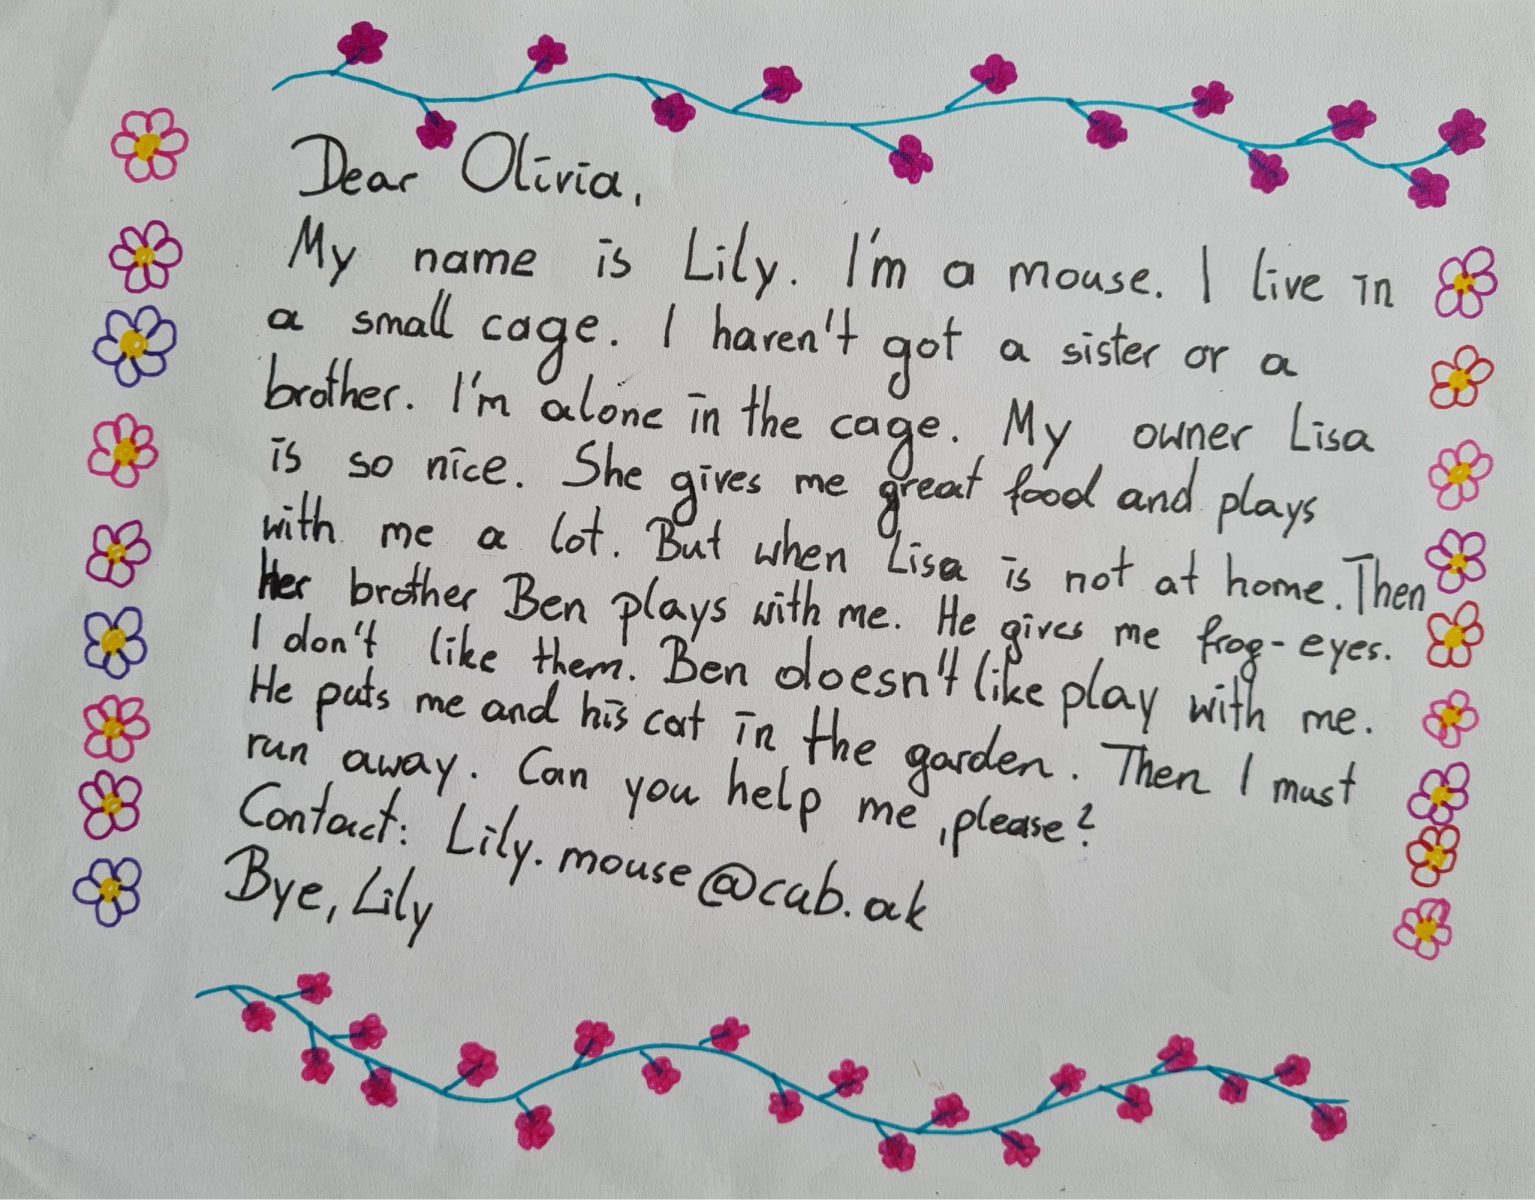 Dear Olivia,
My name is Lily. I'm a mouse. I live in
a small cage. I haven't got a sister or a
brother. I'm alone in the cage. My owner Lisa
is so nice. She gives me great food and plays
with me a lot. But when Lisa is not at home. Then
Her brother Ben plays with me. He gives me frog-eyes.
I don't like them. Ben doesn't like play with me.
He puts me and his cat in the garden. Then I must
run away. Can you help me, please?
Contact: Lily.mouse@cab.ak
Bye, Lily